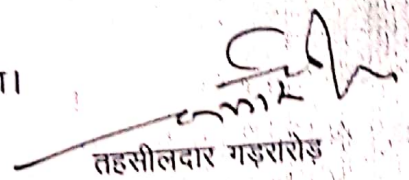 ा।
तहसीलदार गड़रारोड़